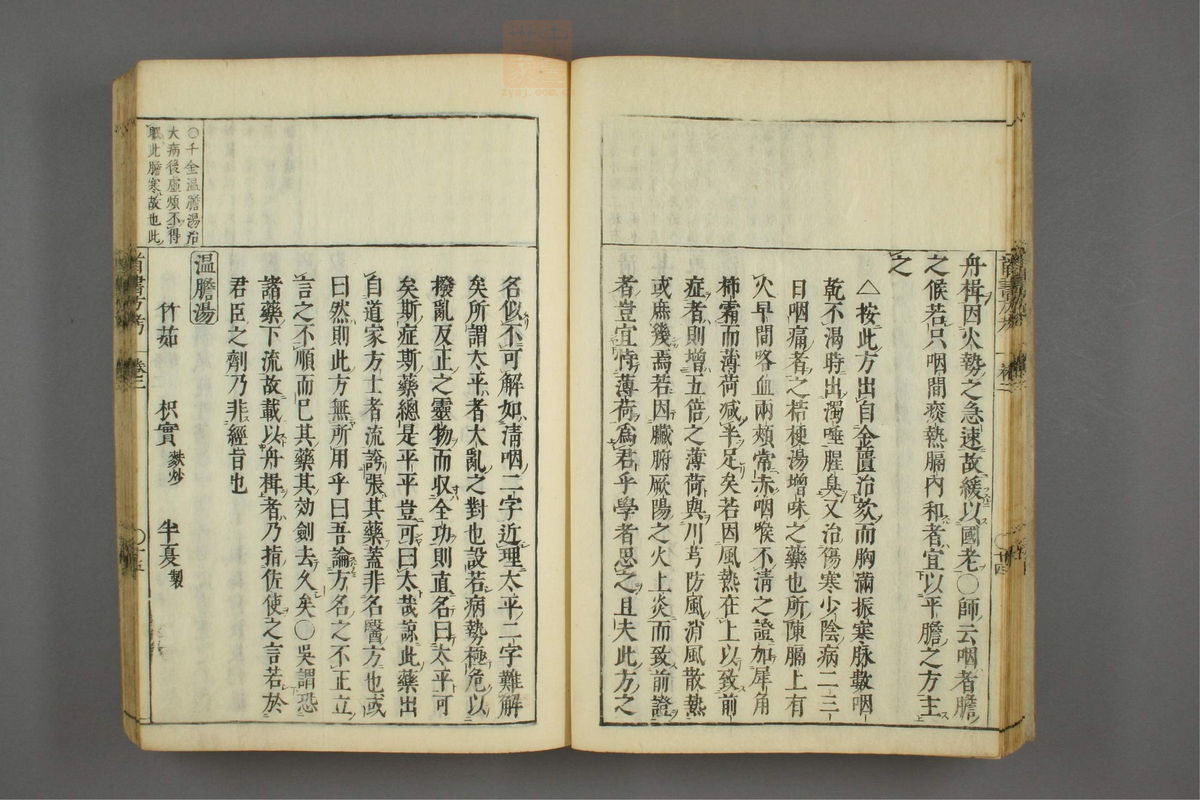 舟楫因火勢之急速故緩以國老○師云咽者膽
之候若只咽間痰熱膈內和者宜以平膽之方主
之
△按此方出自金匱治欬而胸滿振寒脉數咽
乾不渴時出濁唾腥臭又治傷寒少陰病二三
日咽痛者之桔梗湯增味之藥也所陳膈上有
火早間咯血兩頰常赤咽喉不清之證加犀角
柿霜而薄荷减半足矣若因風熱在上以致前
症者則增五倍之薄荷與川芎防風消風散熱
或庶幾焉若因臟腑厥陽之火上炎而致前證
者豈宜恃薄荷爲君乎學者思之且夫此方之
名似不可解如清咽二字近理太平二字難解
矣所謂太平者大亂之對也設若病勢極危以
撥亂反正之靈物而収全功則直名曰太平可
矣斯症斯藥總是平平豈可曰太哉諒此藥出
自道家方士者流誇張其藥蓋非名醫方也或
曰然則此方無所用乎曰吾論方名之不正立
言之不順而巳其藥其効劍去久矣○吳謂恐
諸藥下流故載以舟楫者乃指佐使之言若於
君臣之劑乃非經旨也
○千金溫膽湯治
大病後虛煩不得
眠此膽寒故也此
溫膽湯
竹茹 枳實麩炒 半夏製
卷三
十五